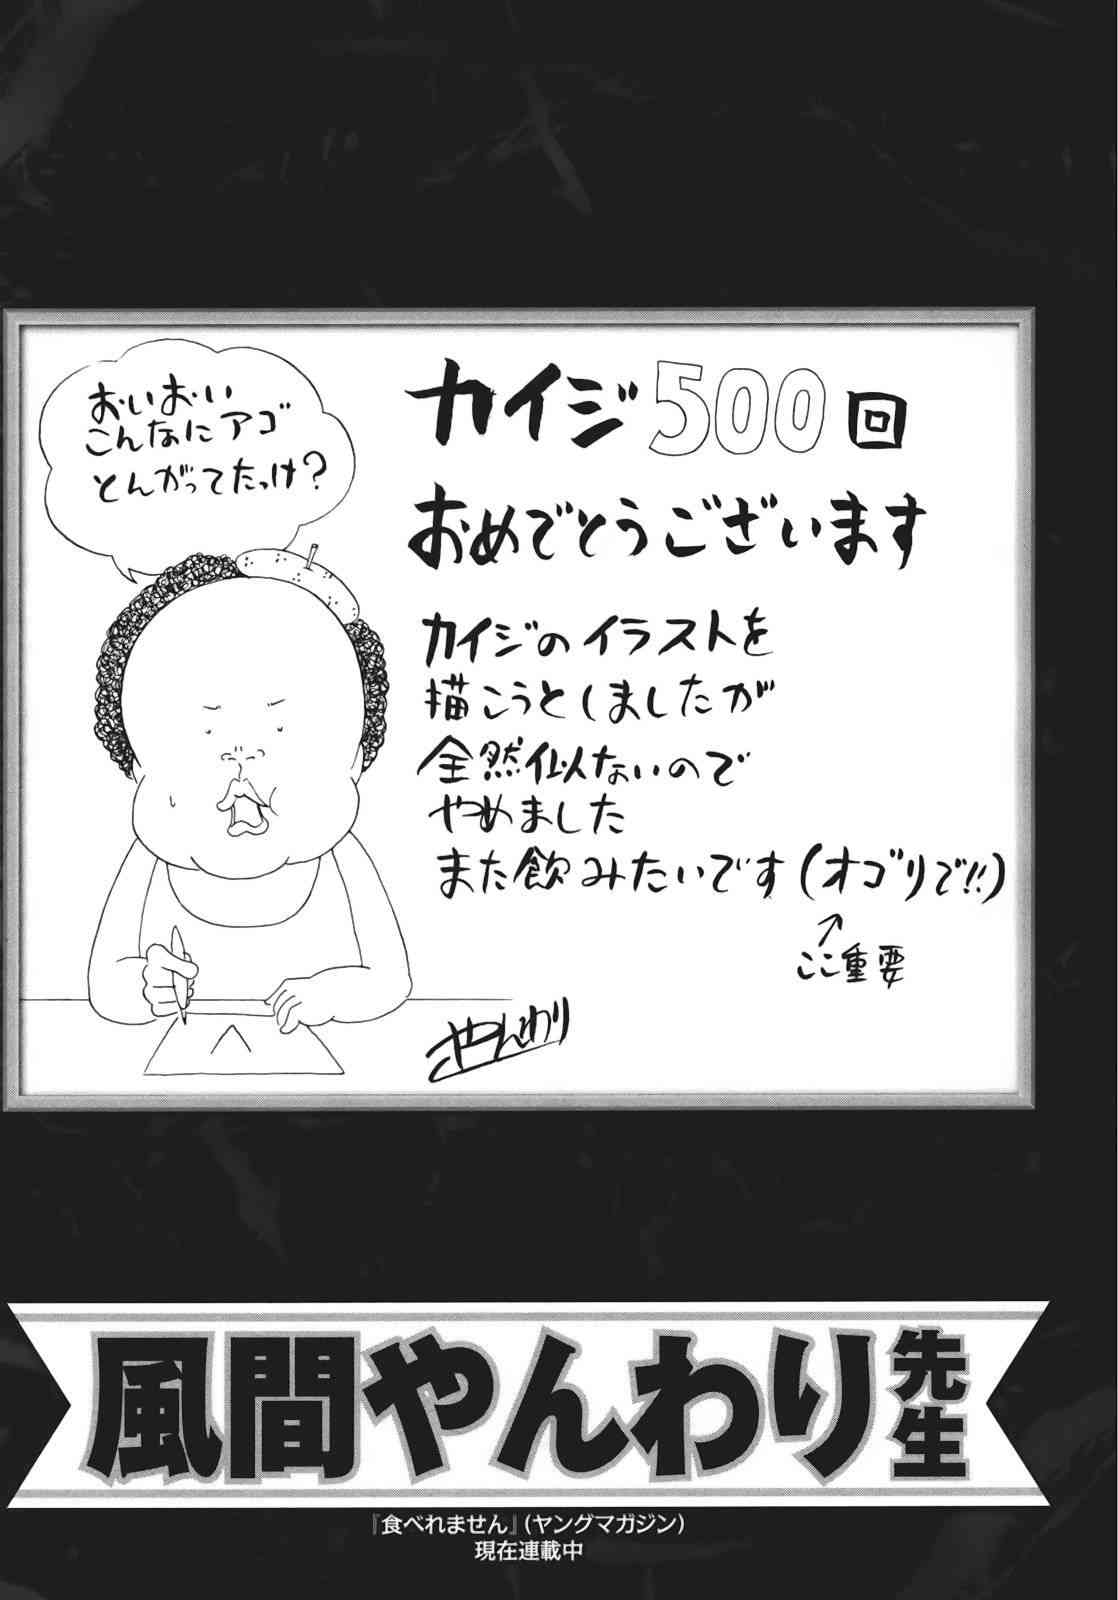 おいおい
こんなにアゴ
とんがってたっけ？
カイジ500回
おめでとうございます
カイジのイラストを
描こうとしましたが
全然似ないので
やめました
また飲みたいです(オゴリで!!)
↑
ここ重要
やんわり
風間やんわり先生
『食べれません』(ヤングマガジン)
現在連載中